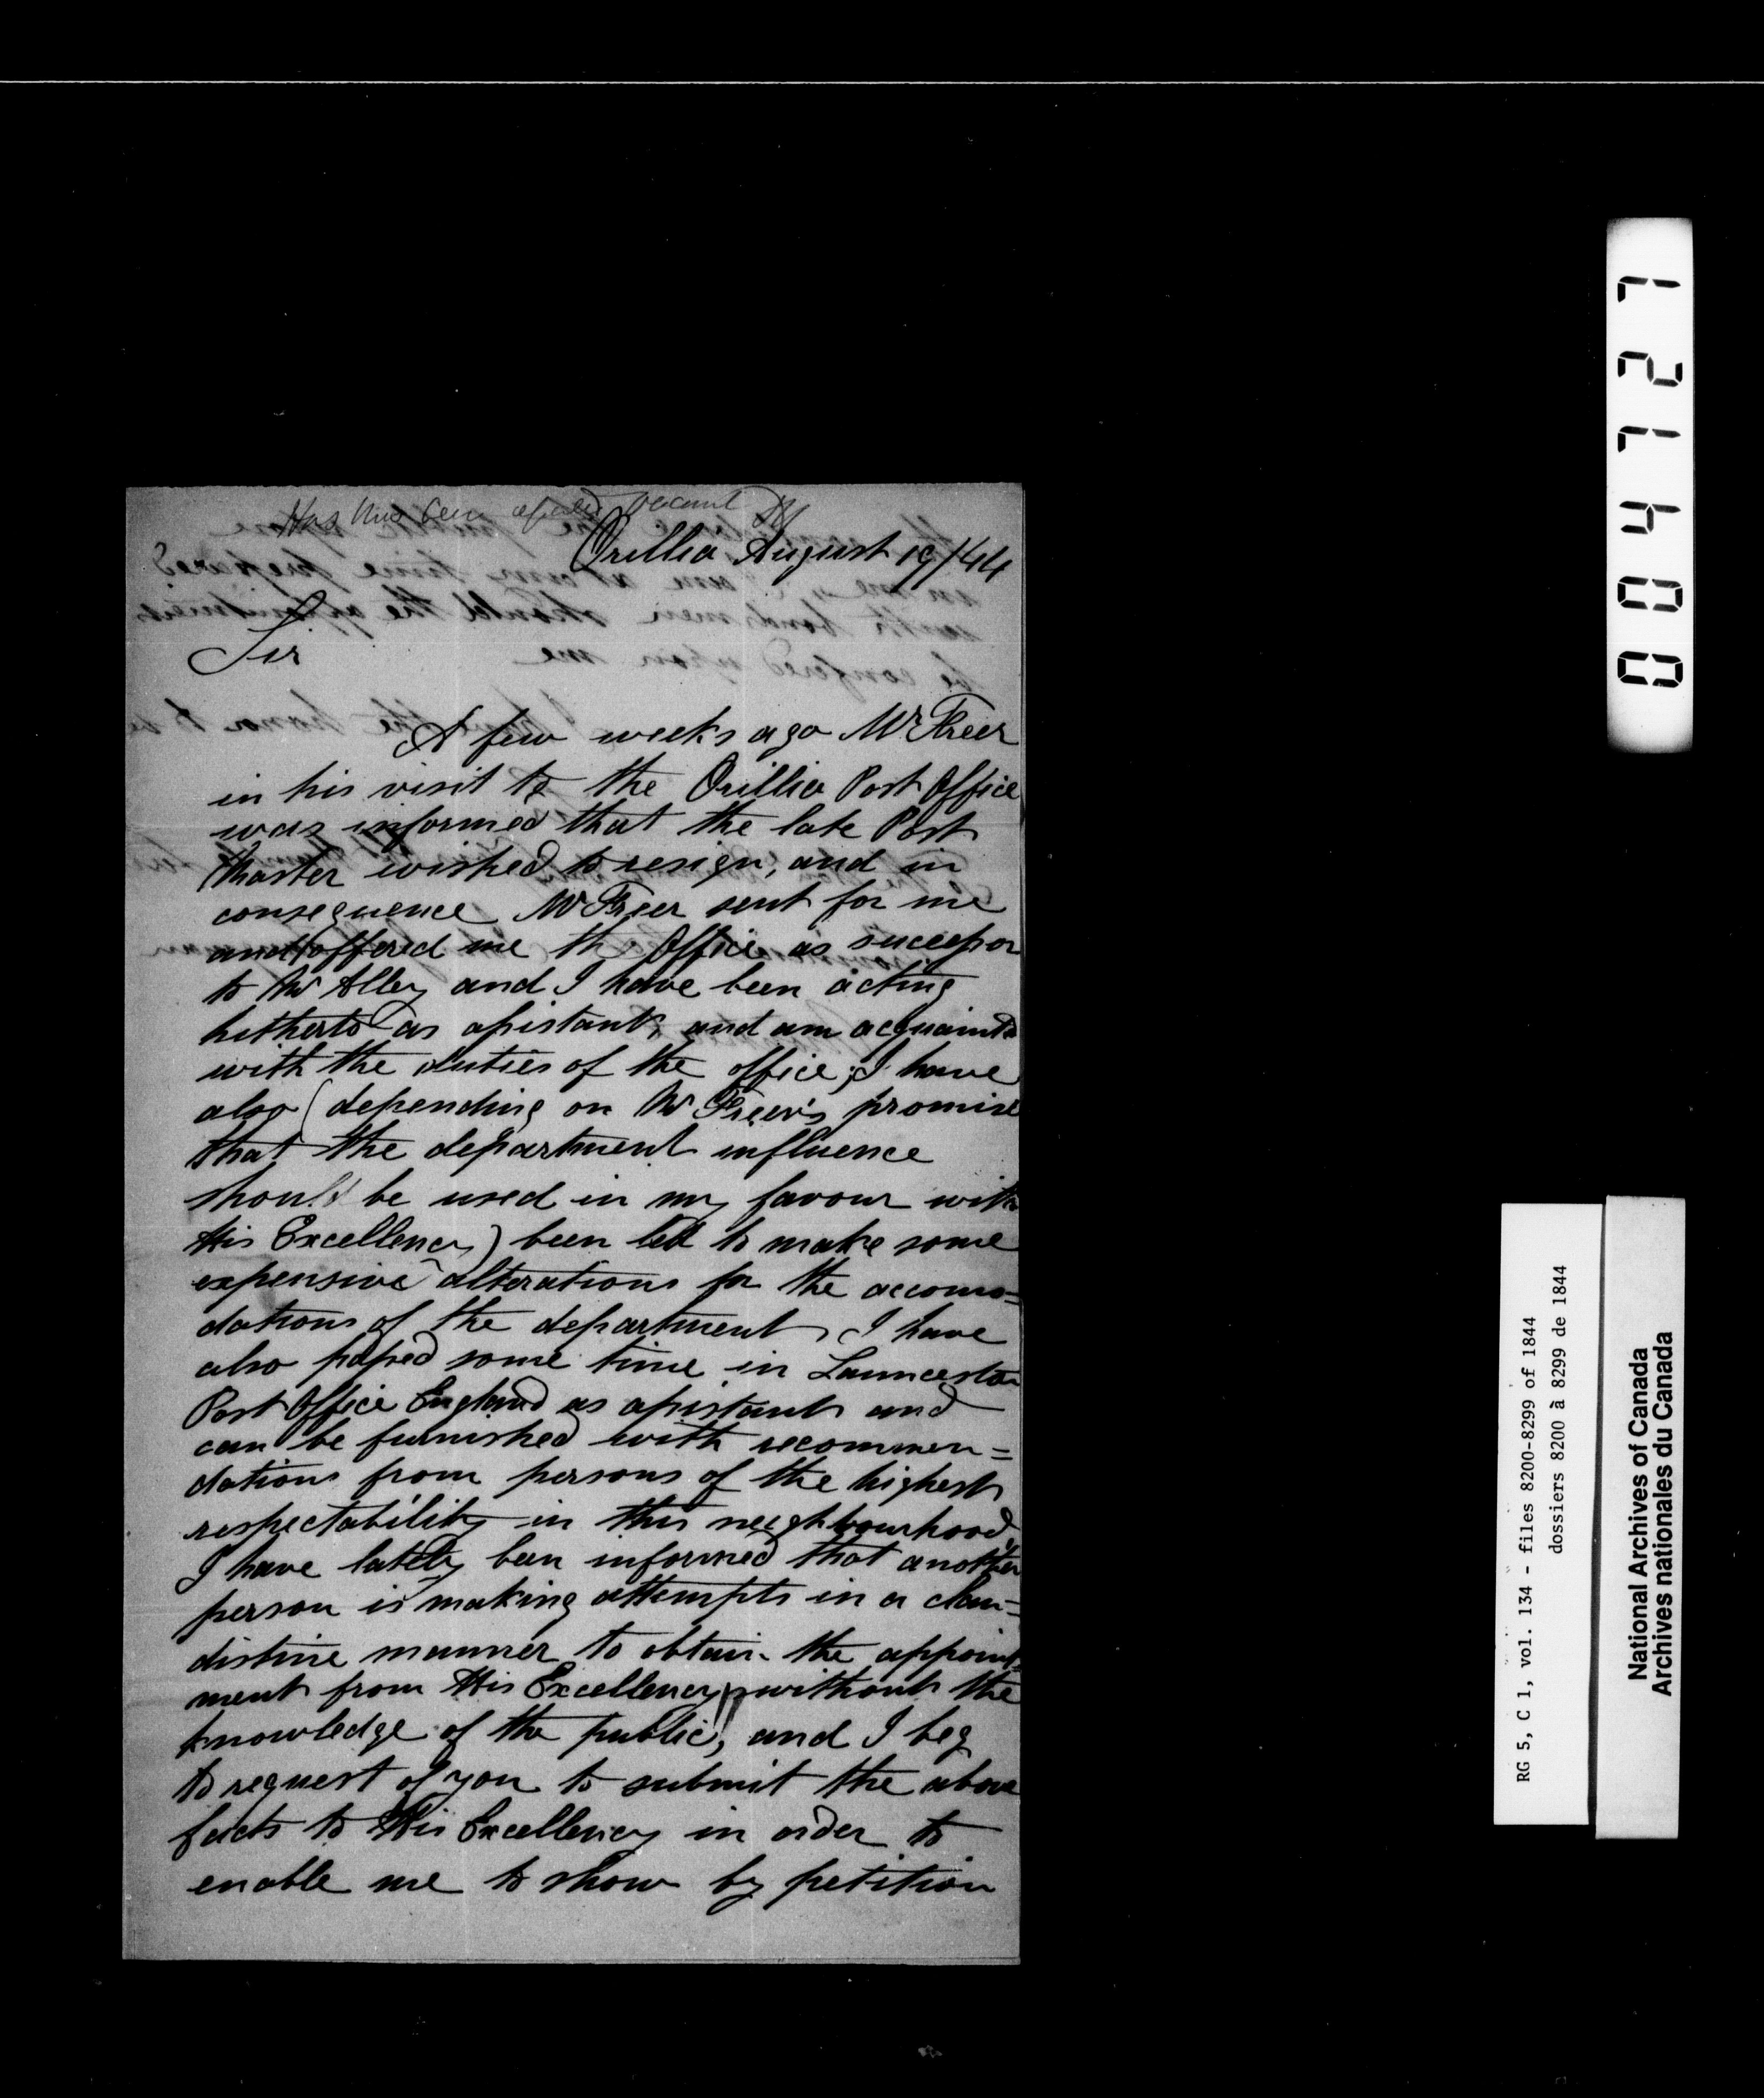 Has this been
Orillia August 19/44
Sir
A few weeks ago Mr Freer
in his visit to the Orillia Post Office
was informed that the late Post
Master wished to resign, and in
consequence Mr Freer sent for me
and offered me the Office as successor
to Mr Alley and I have been acting
hitherto as assistant, and am acquainted
with the duties of the office; I have
also (depending on Mr Freer's promise
that the department influence
should be used in my favour with
His Excellency) been led to make some
expensive alterations for the accomo=
dations of the department, I have
also passed some time in Launceston
Post Office England as assistant and
can be furnished with recommen=
dations from persons of the highest
respectability in this neighbourhood,
I have lately been informed that another
person is making attempts in a clan=
distine manner to obtain the appoint=
ment from His Excellency without the
knowledge of the public, and I beg
to request of you to submit the above
facts to His Excellency in order to
enable me to show by petition
004727
RG 5, C 1, vol. 134 - files 8200-8299 of 1844
dossiers 8200 à 8299 de 1844
National Archives of Canada
Archives nationales du Canada